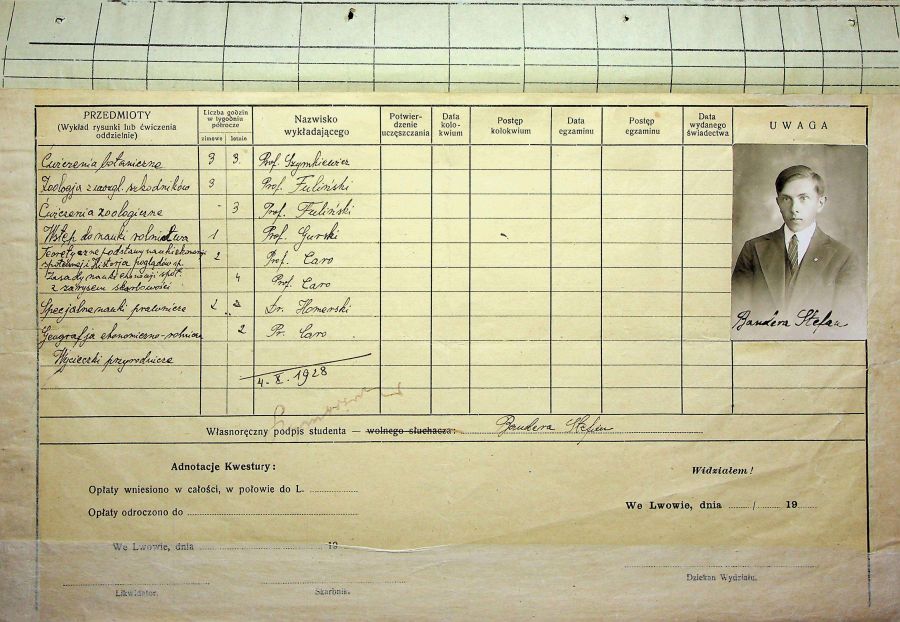 PRZEDMIOTY
(Wykład rysunki lub ćwiczenia
oddzielnie)
Liczba godzin
w tygodniu
półrocze
zimowe letnie
Nazwisko
wykładającego
Potwier-
dzenie
uczęszczania
Data
kolo-
kwium
Postęp
kolokwium
Data
egzaminu
Postęp
egzaminu
Data
wydanego
świadectwa
UWAGA
Ćwiczenia botaniczne 3 3. Prof. Szymkiewicz
Zoologja z uwzgl. szkodników 3 Prof. Fuliński
Ćwiczenia zoologiczne - 3 Prof. Fuliński
Wstęp do nauki rolnictwa 1 Prof. Gurski
Teoretyczne podstawy nauki ekonomji
społecznej i Historja poglądów sp. 2 Prof. Caro
Zasady nauki ekonomji społ.
z zarysem skarbowości 4 Prof. Caro
Specjalne nauki prawnicze 2 2 Dr. Homerski
Geografja ekonomiczno-rolnicza 2 Pr. Caro
Wycieczki przyrodnicze
4. X. 1928
Bandera Stefan
Własnoręczny podpis studenta — wolnego słuchacza: Bandera Stefan
Adnotacje Kwestury:
Opłaty wniesiono w całości, w połowie do L.
Opłaty odroczono do
We Lwowie, dnia 19
Likwidator. Skarbnik.
Widziałem!
We Lwowie, dnia / 19
Dziekan Wydziału.